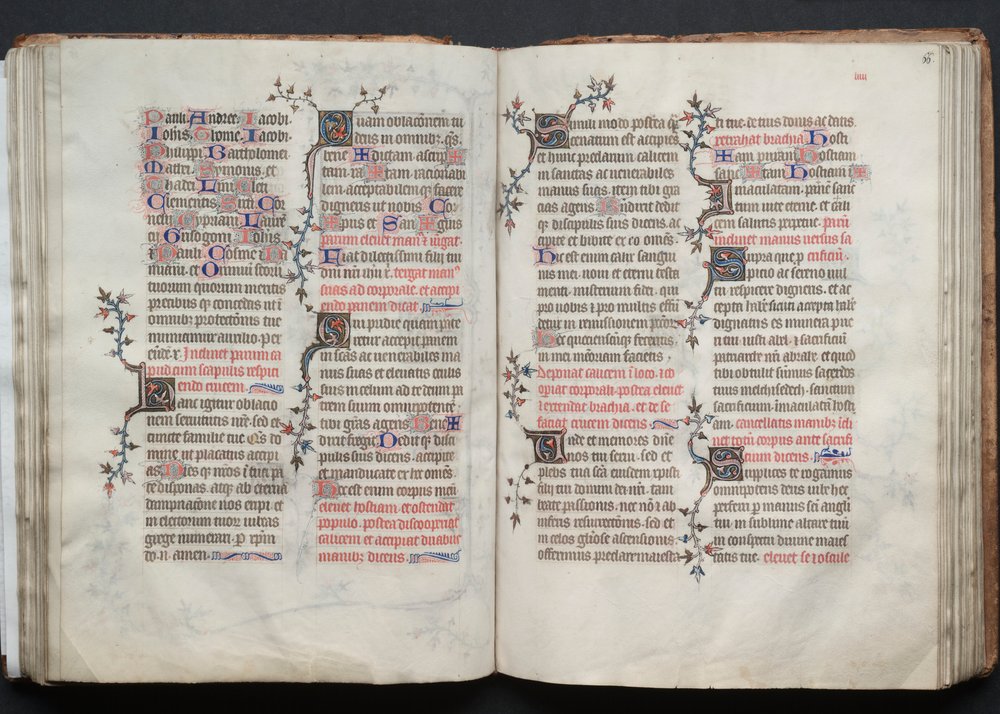 Pauli. Andree. Iacobi.
Iohis. Thome. Iacobi.
Philippi. Bartholomei.
Mathei. Symonis. et
Thadei. Lini. Cleti
Clementis. Sixti. Cor
nelij. Cypriani. Laure
Grisogoni. Iohis
et Pauli. Cosme et Da
miani. et Omnium scorum
tuorum quorum meritis
precibusq; concedas ut i
omnib; protectionis tue
muniamur auxilio. per
eunde x. Inclinet parum ca
pud cum scapulis respici
endo crucem.
Hanc igitur oblatio
nem seruitutis nre. sed et
cuncte familie tue. Qs do
mine ut placatus accipi
as. Dies q; nros i tua pa
ce disponas. atq; ab eterna
dampnatione nos eripi. et
in electorum tuor iubeas
grege numerari. p xpm
do. n. amen.
Quam oblationem tu
deus in omnib; qs.
bene dictam. ascrip
tam. ra tam. rationabi
lem. acceptabilem q; facere
digneris ut nobis Cor
pus et San guis
parum eleuet man et iugat
Fiat dilectissimi filii tui
dni nri ihu x. tergat man9
suas ad corporale. et accipi
endo panem dicat.
Qui pridie quam pate
retur accepit panem
in scas ac uenerabiles ma
nus suas et eleuatis oculis
suis in celum ad te deum pa
trem suum omnipotente
tibi gras agens. Bene
dixit fregit. Dedit q; disci
pulis suis dicens. accipite
et manducate ex hoc omes.
Hoc est enim corpus meu
eleuet hostiam. et ostendat
populo. postea discooperiat
calicem et accipiat duabus
manib; dicens.
66.
iiii
Simili modo postea q;
cenatum est accipies
et hunc preclarum calicem
in sanctas ac uenerabiles
manus suas. item tibi gra
cias agens. Bndixit dedit
q; discipulis suis dicens. ac
cipite et bibite ex eo omes.
Hic est enim calix sangui
nis mei. noui et eterni testa
menti. misterium fidei. qui
pro nobis et pro multis effu
detur in remissionem peccorum.
Hec quotiensq; feceritis.
in mei memoriam facietis.
Deponat calicem i loco. et co
opiat corporali. postea eleuet
et extendat brachia. et de se
faciat crucem dicens.
Unde et memores dne
nos tui serui. sed et
plebs tua sca eiusdem xpisti
filij tui domini dei nri. tam
beate passionis. nec non et ab
inferis resurectionis. sed et
in celos gliose ascensionis.
offerimus preclare maiesta
ti tue. de tuis donis ac datis.
retrahat brachia. Hosti
am puram. Hostiam
sanc tam. Hostiam i
maculatam. pane sanc
tum uite eterne. et cali
cem salutis perpetue. parum
inclinet manus uersus sa
Supra que p crificium.
picio ac sereno uul
tu respicere digneris. et ac
cepta habere. sicuti accepta habe
dignatus es munera pue
ri tui iusti abel. et sacrificiu
patriarche nri abrahe. et quod
tibi obtulit summus sacerdos
tuus melchisedech. sanctum
sacrificium. imaculata hosti
am. cancellatis manib; icli
net totum corpus ante sacrifi
cium dicens.
Supplices te rogamus
omnipotens deus iube hec
perferri p manus sci angli
tui. in sublime altare tuu
in conspectu diuine maies
tatis tue. eleuet se et oscule